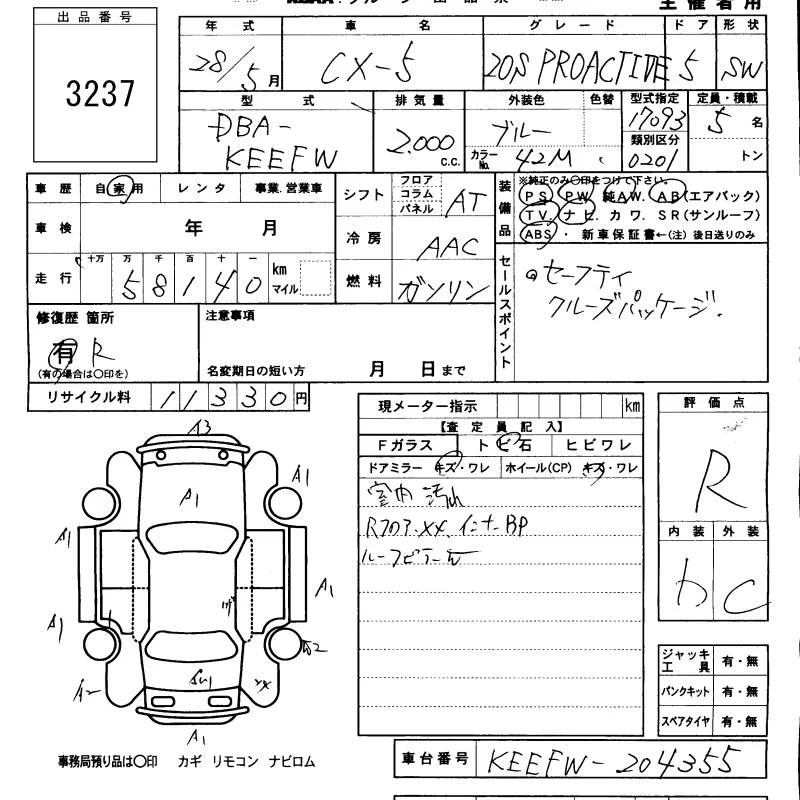 主催者用
出品番号
3237
年式 車名 グレード ドア 形状
28/5月 CX-5 20S PROACTIVE 5 SW
型式 排気量 外装色 色替 型式指定 定員・積載
DBA-
KEEFW
2.000 c.c.
ブルー
カラーNo. 42M
17093
類別区分
0201
5名
トン
車歴 自家用 レンタ 事業.営業車
車検 年 月
走行 十万 万 千 百 十 一 km マイル
58140
シフト フロア コラム パネル AT
冷房 AAC
燃料 ガソリン
装備品
※純正のみ〇印をつけて下さい。
PS PW 純AW. AB(エアバック)
TV. ナビ. カワ. SR(サンルーフ)
ABS・新車保証書←(注)後日送りのみ
セールスポイント
セーフティ
クルーズパッケージ.
修復歴 箇所
有 R
(有の場合は〇印を)
注意事項
名変期日の短い方 月 日まで
リサイクル料 11330円
現メーター指示 km
【査定員記入】
Fガラス トビ石 ヒビワレ
ドアミラー キズ・ワレ ホイール(CP) キズ・ワレ
室内 汚れ
Rフロア.XX. インナーBP
評価点
R
内装 外装
C
A3
A1
A1
A1
A1
A1
A2
XX
A1
ジャッキ工具 有・無
パンクキット 有・無
スペアタイヤ 有・無
事務局預り品は〇印 カギ リモコン ナビロム
車台番号 KEEFW-204355